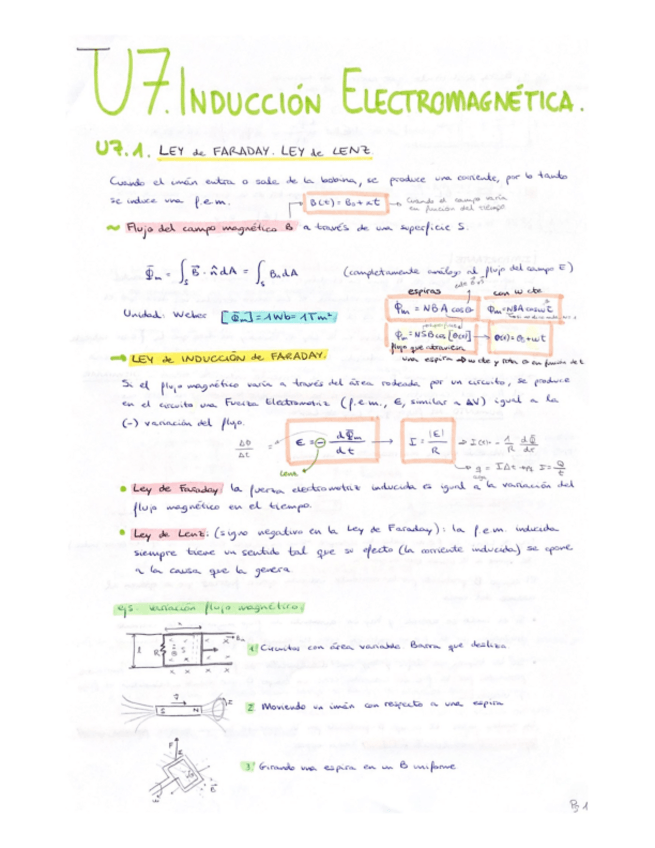 U7. INDUCCIÓN ELECTROMAGNÉTICA.
U7.1. LEY de FARADAY. LEY de LENZ
Cuando el imán entra o sale de la bobina, se produce una corriente, por lo tanto
se induce una f.e.m. B(t) = B₀ + xt → Cuando el campo varía
en función del tiempo
~ Flujo del campo magnético B a través de una superficie S.
Φm = ∫s B · n̂ dA = ∫s Bn dA (completamente análogo al flujo del campo E)
espiras con w cte
Φm = NBA cosθ Φm = NBA coswt
Unidad: Weber [Φm] = 1Wb = 1Tm²
Φm = NSB cos [θ(t)] → θ(t) = θ₀ + wt
flujo que atraviesa
una espira → w cte y rota en función de t
→ LEY de INDUCCIÓN DE FARADAY.
Si el flujo magnético varía a través del área rodeada por un circuito, se produce
en el circuito una Fuerza Electromotriz (f.e.m., ε, similar a ΔV) igual a la
(-) variación del flujo.
ΔΦ/Δt = ε = - dΦm/dt → I = |ε|/R → I(t) = - 1/R dΦ/dt
Lenz q = IΔt → I = Q/t
• Ley de Faraday: la fuerza electromotriz inducida es igual a la variación del
flujo magnético en el tiempo.
• Ley de Lenz: (signo negativo en la Ley de Faraday): la f.e.m. inducida
siempre tiene un sentido tal que su efecto (la corriente inducida) se opone
a la causa que la genera
ejs. variación flujo magnético:
1 Circuitos con área variable. Barra que desliza
R
2 Moviendo un imán con respecto a una espira
S N
3 Girando una espira en un B uniforme
Pg 1